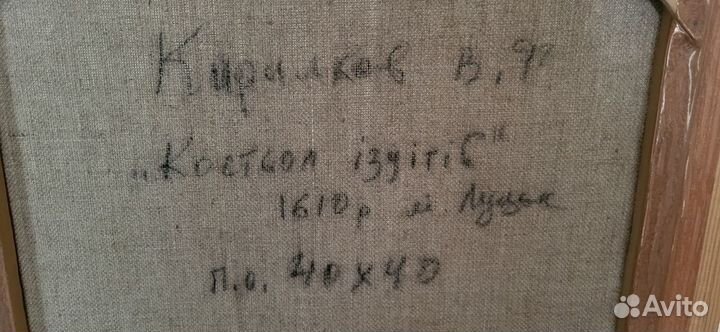 Кирилков В, 9?
„Костьол ізуітів"
1610р м. Луцьк
п.о. 40х40
Avito